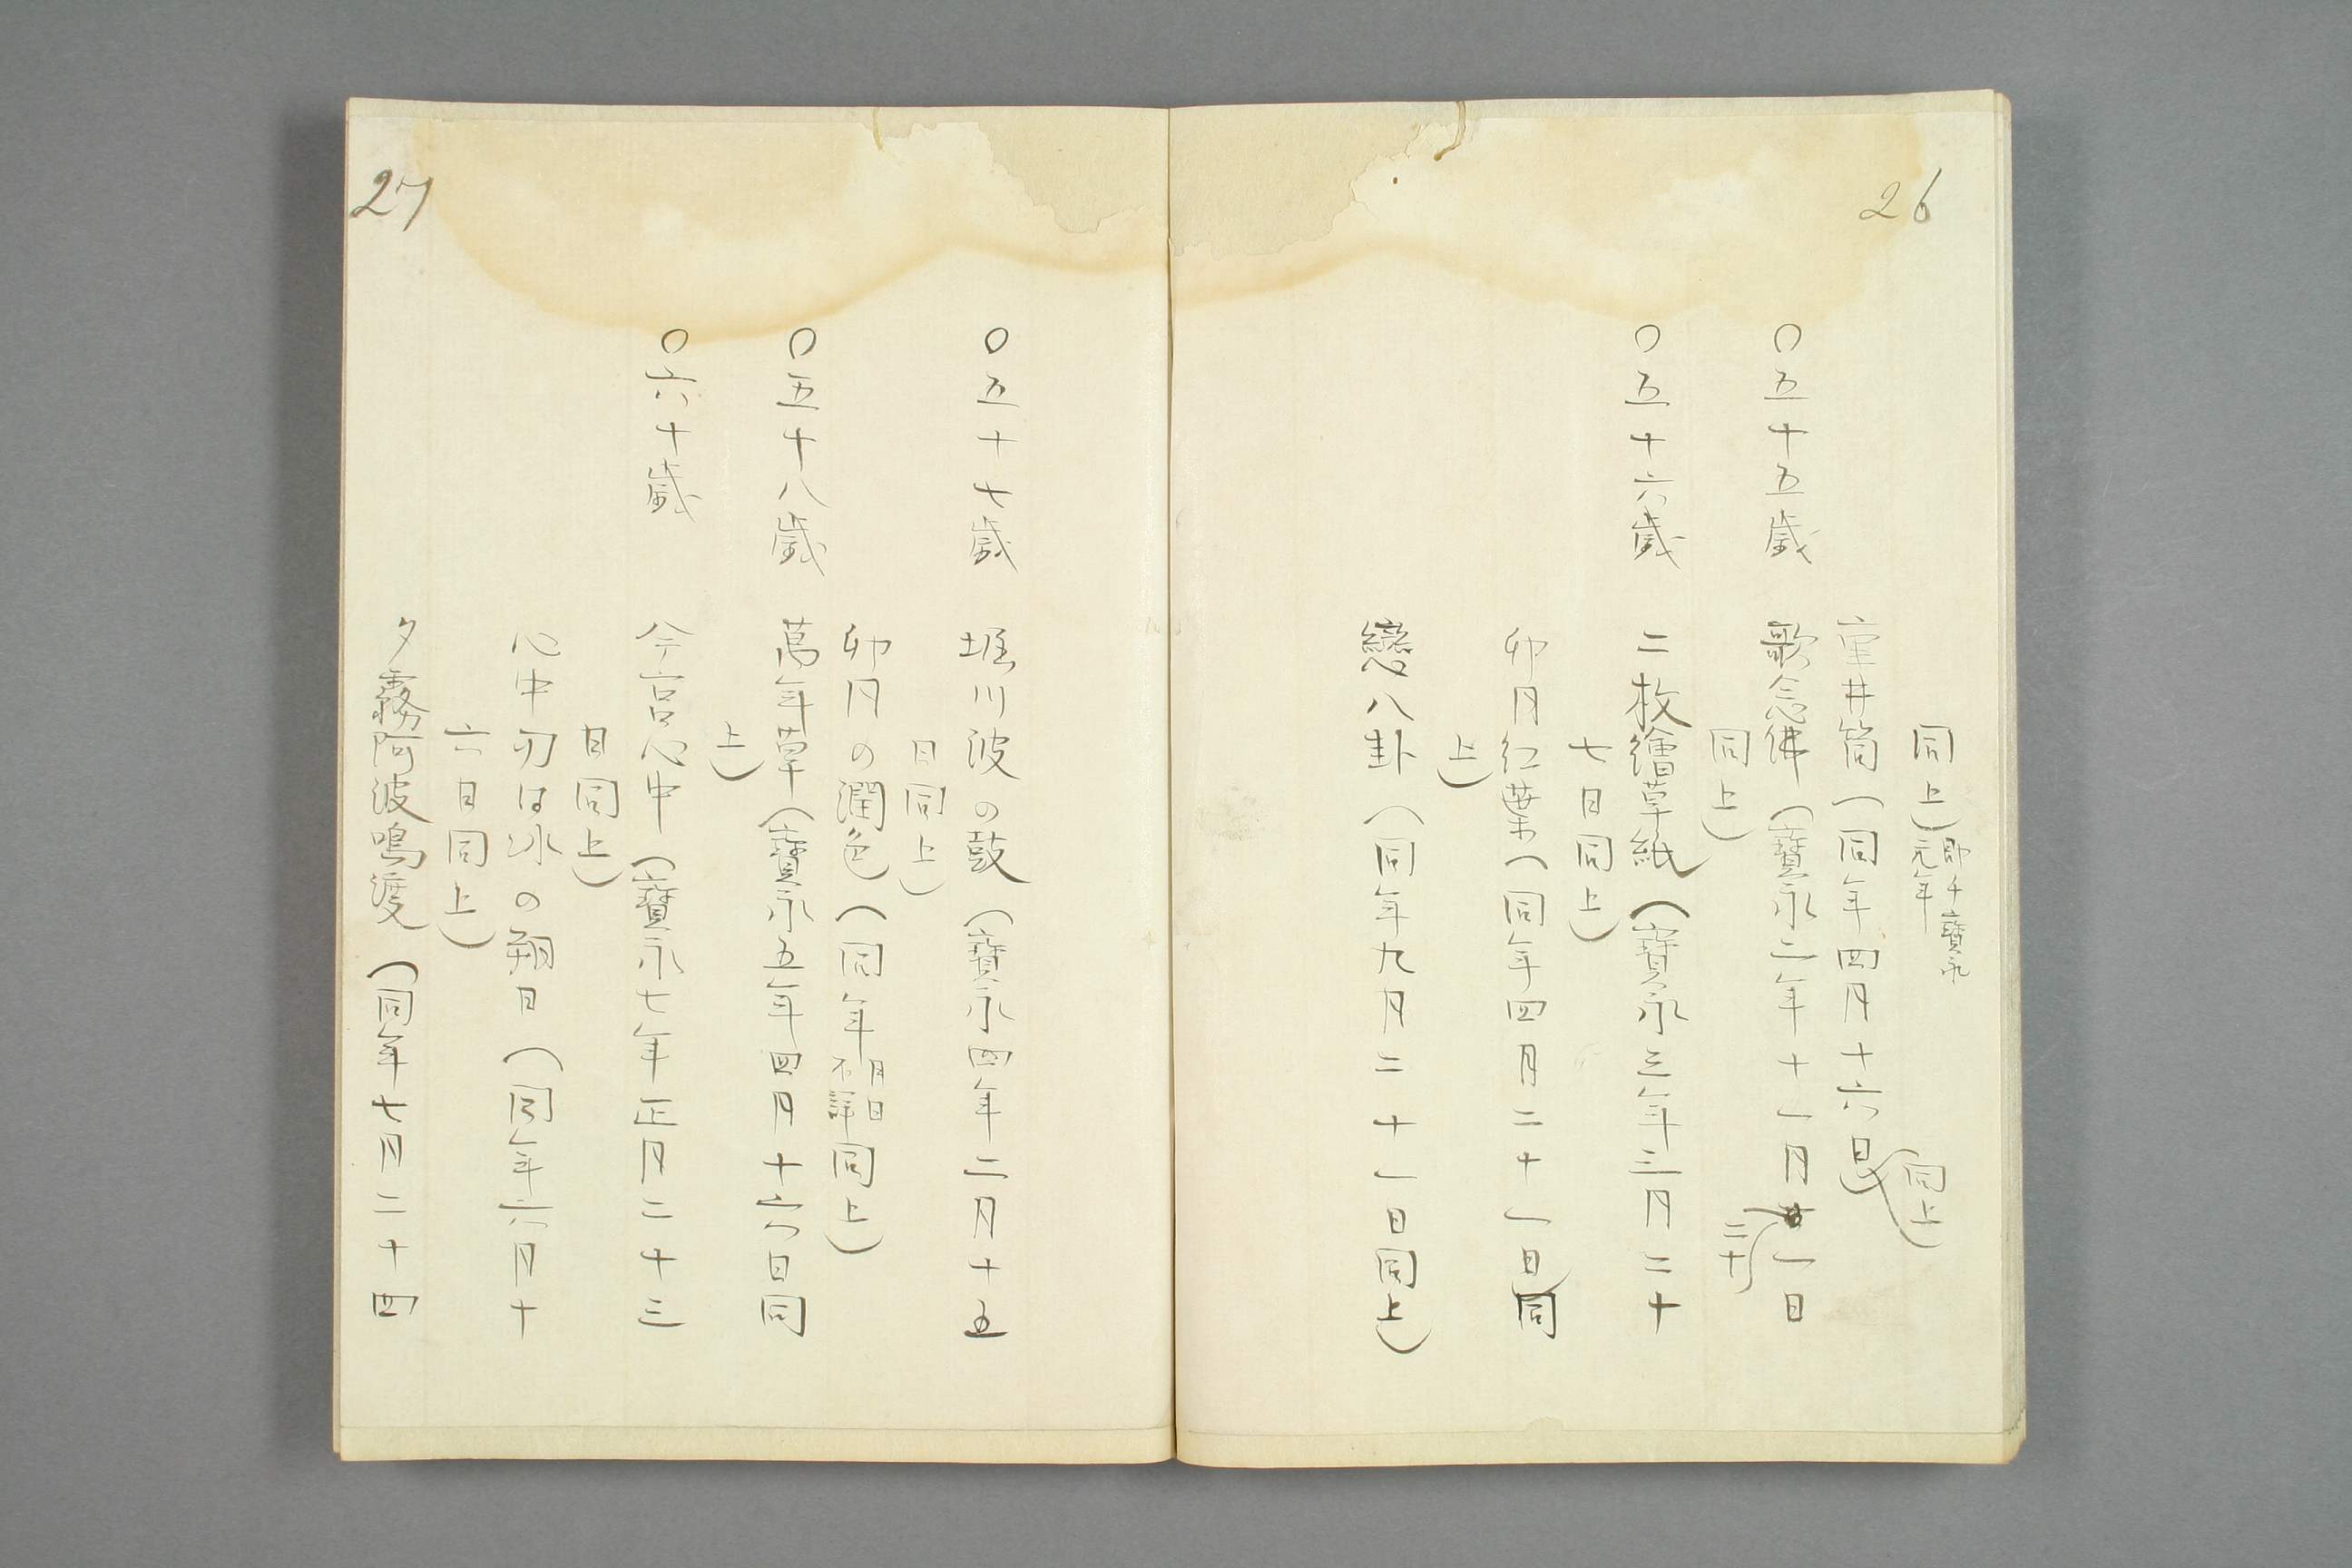 26
同上)即チ寶永元年
重井筒(同年四月十六日)(同上)
○五十五歳 歌念佛(寶永二年十一月廿一日
三十
同上)
○五十六歳 二枚繪草紙(寶永三年三月二十
七日同上)
卯月紅葉(同年四月二十一日同
上)
戀八卦(同年九月二十一日同上)
○五十七歳 堀川波の鼓(寶永四年二月十五
日同上)
卯月の潤色(同年月日不詳同上)
○五十八歳 萬年草(寶永五年四月十六日同
上)
○六十歳 今宮心中(寶永七年正月二十三
日同上)
心中刃は氷の朔日(同年六月十
六日同上)
夕霧阿波鳴渡(同年七月二十四
27